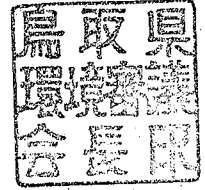 鳥取県
環境審議
会長印